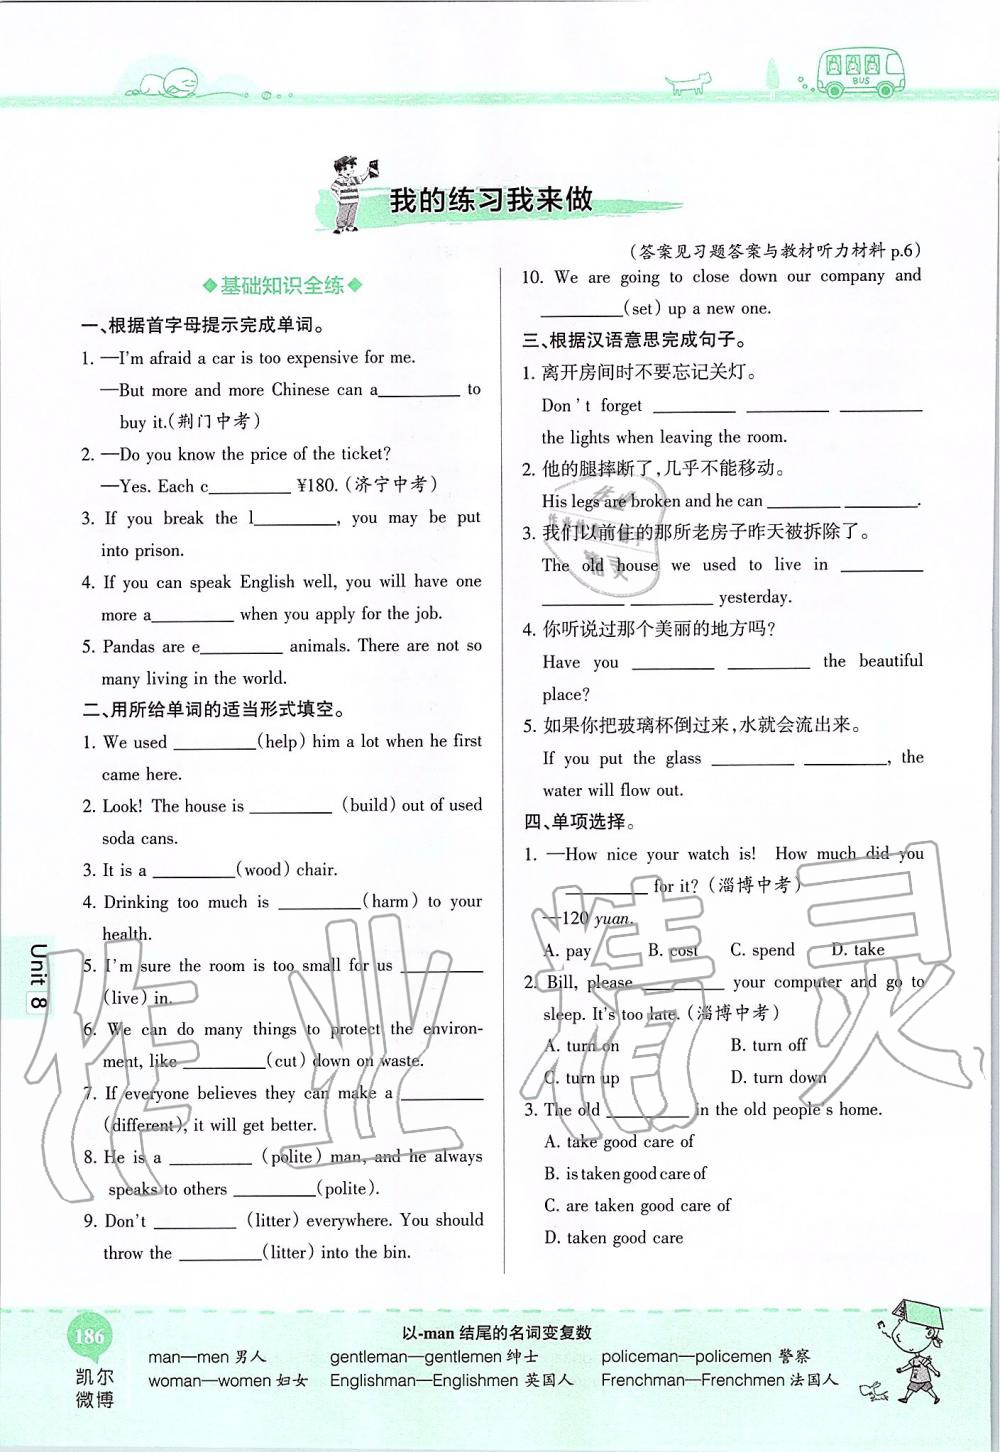 BUS
我的练习我来做
(答案见习题答案与教材听力材料 p.6)
基础知识全练
一、根据首字母提示完成单词。
1. —I'm afraid a car is too expensive for me.
—But more and more Chinese can a________ to
buy it.(荆门中考)
2. —Do you know the price of the ticket?
—Yes. Each c________ ¥180. (济宁中考)
3. If you break the l________, you may be put
into prison.
4. If you can speak English well, you will have one
more a________ when you apply for the job.
5. Pandas are e________ animals. There are not so
many living in the world.
二、用所给单词的适当形式填空。
1. We used ________(help) him a lot when he first
came here.
2. Look! The house is ________ (build) out of used
soda cans.
3. It is a ________(wood) chair.
4. Drinking too much is ________(harm) to your
health.
5. I'm sure the room is too small for us ________
(live) in.
6. We can do many things to protect the environ-
ment, like ________(cut) down on waste.
7. If everyone believes they can make a ________
(different), it will get better.
8. He is a ________ (polite) man, and he always
speaks to others ________(polite).
9. Don't ________ (litter) everywhere. You should
throw the ________(litter) into the bin.
10. We are going to close down our company and
________(set) up a new one.
三、根据汉语意思完成句子。
1. 离开房间时不要忘记关灯。
Don't forget ________ ________ ________
the lights when leaving the room.
2. 他的腿摔断了,几乎不能移动。
His legs are broken and he can ________ ________.
3. 我们以前住的那所老房子昨天被拆除了。
The old house we used to live in ________
________ ________ yesterday.
4. 你听说过那个美丽的地方吗?
Have you ________ ________ the beautiful
place?
5. 如果你把玻璃杯倒过来,水就会流出来。
If you put the glass ________ ________, the
water will flow out.
四、单项选择。
1. —How nice your watch is! How much did you
________ for it? (淄博中考)
—120 yuan.
A. pay B. cost C. spend D. take
2. Bill, please ________ your computer and go to
sleep. It's too late. (淄博中考)
A. turn on B. turn off
C. turn up D. turn down
3. The old ________ in the old people's home.
A. take good care of
B. is taken good care of
C. are taken good care of
D. taken good care
Unit 8
186
凯尔
微博
以-man 结尾的名词变复数
man—men 男人 gentleman—gentlemen 绅士 policeman—policemen 警察
woman—women 妇女 Englishman—Englishmen 英国人 Frenchman—Frenchmen 法国人
作业精灵